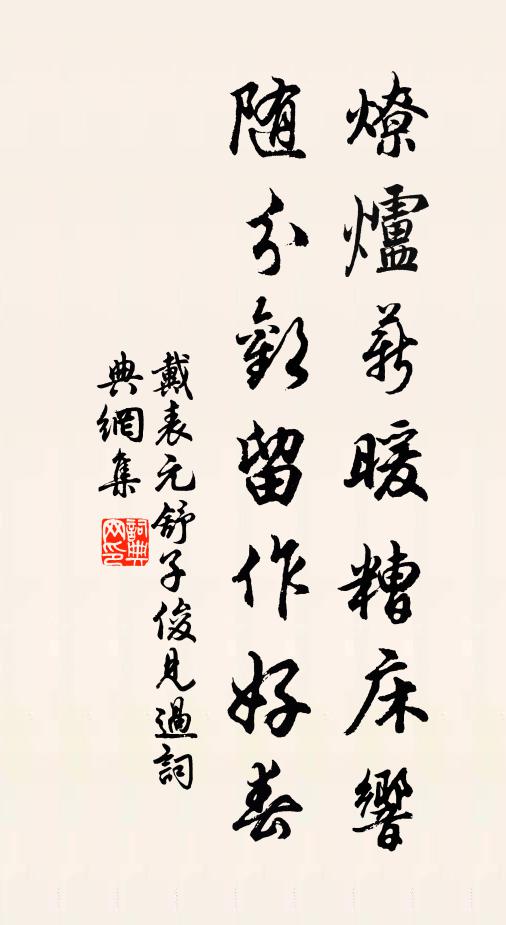 燎爐薪暖糟床響
随分歡留作好春
戴表元舒子俊見過詞
典網集
詞典網印